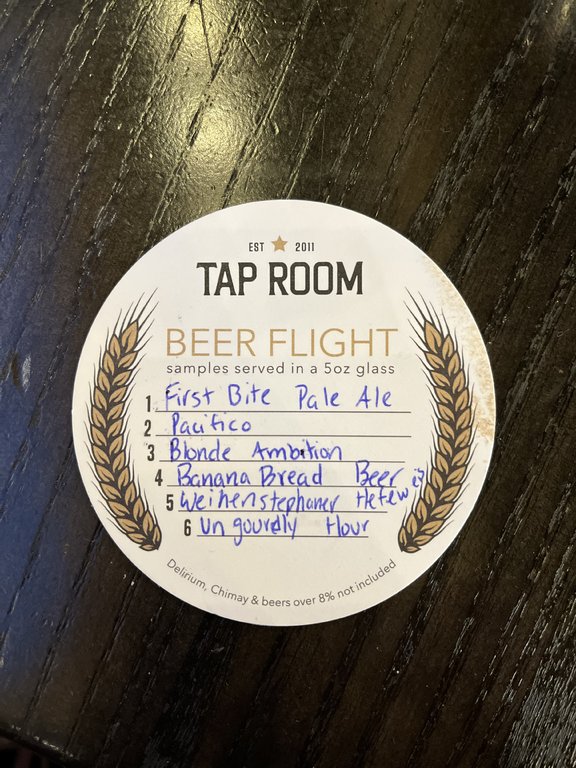 EST 2011
TAP ROOM
BEER FLIGHT
samples served in a 5oz glass
1 First Bite Pale Ale
2 Pacifico
3 Blonde Ambition
4 Banana Bread Beer
5 Weihenstephaner Hefew
6 Un gourdly Hour
Delirium, Chimay & beers over 8% not included